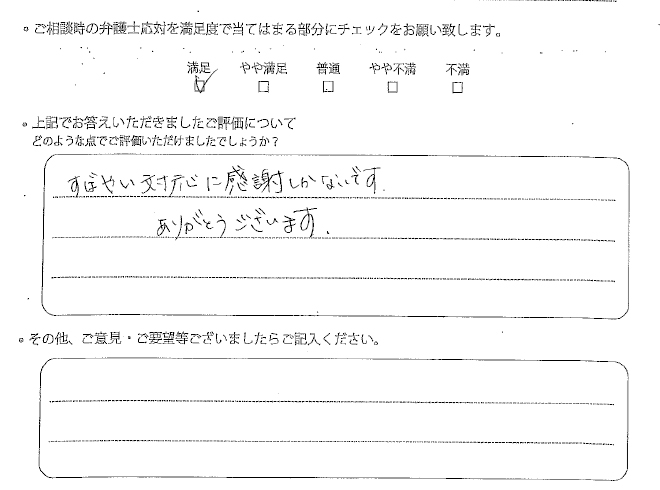 。ご相談時の弁護士応対を満足度で当てはまる部分にチェックをお願い致します。
満足 やや満足 普通 やや不満 不満
。上記でお答えいただきましたご評価について
どのような点でご評価いただけましたでしょうか？
すばやい対応に感謝しかないです.
ありがとうございます.
。その他、ご意見・ご要望等ございましたらご記入ください。